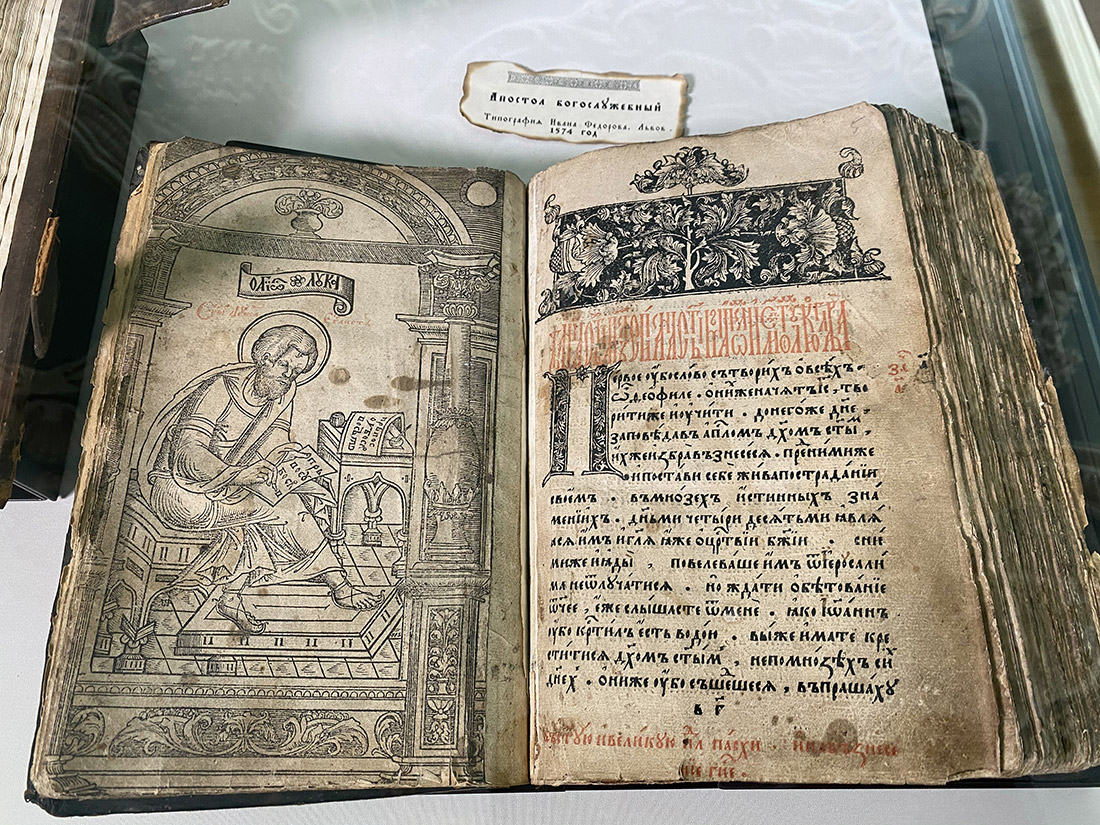 Апостол богослужебный
Типография Ивана Федорова. Львов.
1574 год
ЛУКА
Первое ᲂу҆бо слово сътворихъ о всѣхъ,
ѽ ѳеофиле. о ниже начатъ і҃с, тво
рити же и учити. донегоже дн҃е,
заповѣдавъ ап҃лом дх҃омъ ст҃ы,
ихже избравъ знесеся. пред ними же
и постави себе жива по страданїи
своемъ. въ мнозех и҆стинныхъ зна
менїихъ. дньми четыридесятьми ꙗвлѧ
ася им и глѧ ꙗже о црⷭтвїи бж҃їи. с ни
миже и ꙗды, повелеваше имъ ѿ їерⷭосали
ма не ѿлучатися. но ждати обѣтованїе
ѿчее, еже слышасте ѿ мене. ꙗко Їѡаннъ
ᲂубо крⷭтилъ есть водои. вы же имате кре
ститися дх҃омъ ст҃ым, не по мнозѣхъ си
днех. они же ᲂубо съшешеся, въпрашаху
в г҃